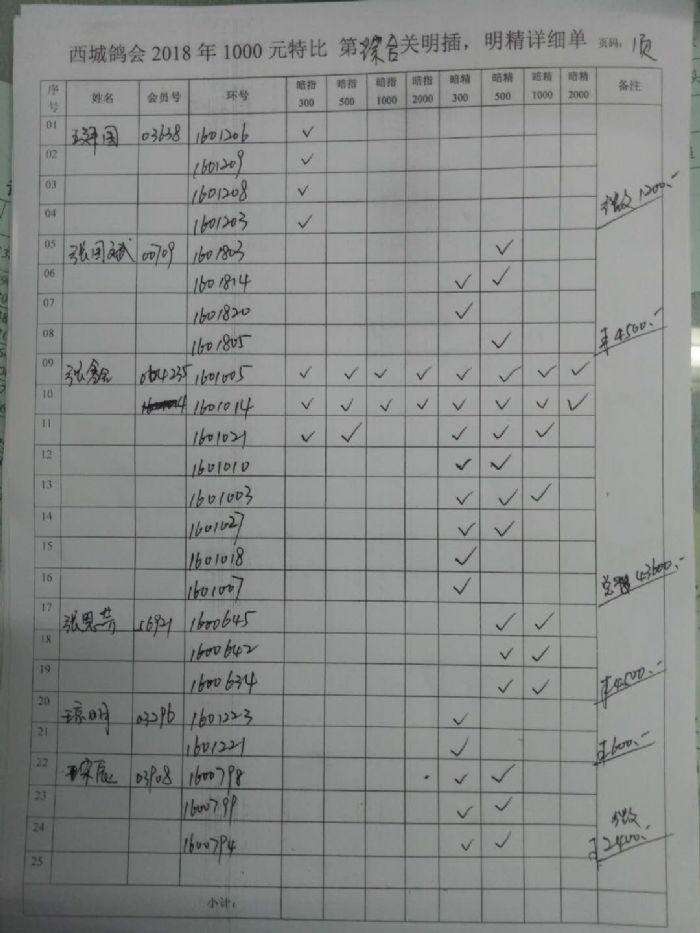 西城鸽会 2018 年 1000 元特比 第 综合 关明插，明精详细单 页码：1页
序号 姓名 会员号 环号 暗指300 暗指500 暗指1000 暗指2000 暗精300 暗精500 暗精1000 暗精2000 备注
01 03638 1601206 ✓
02 1601209 ✓
03 1601208 ✓
04 1601203 ✓ 1200.-
05 张国斌 00709 1601803 ✓
06 1601814 ✓ ✓
07 1601820 ✓
08 1601805 ✓ 4500.-
09 1601005 ✓ ✓ ✓ ✓ ✓ ✓ ✓ ✓
10 1601014 ✓ ✓ ✓ ✓ ✓ ✓ ✓ ✓
11 1601021 ✓ ✓ ✓ ✓ ✓
12 1601010 ✓ ✓
13 1601003 ✓ ✓ ✓
14 1601027 ✓ ✓
15 1601018 ✓
16 1601007 ✓ 43600.-
17 张恩 16921 1600645 ✓ ✓
18 1600642 ✓ ✓
19 1600634 ✓ ✓ 4500.-
20 03296 1601223 ✓
21 1601221 ✓ 600.-
22 03908 1600798 ✓ ✓
23 1600799 ✓ ✓
24 1600794 ✓ ✓ 2400.-
25
小计：